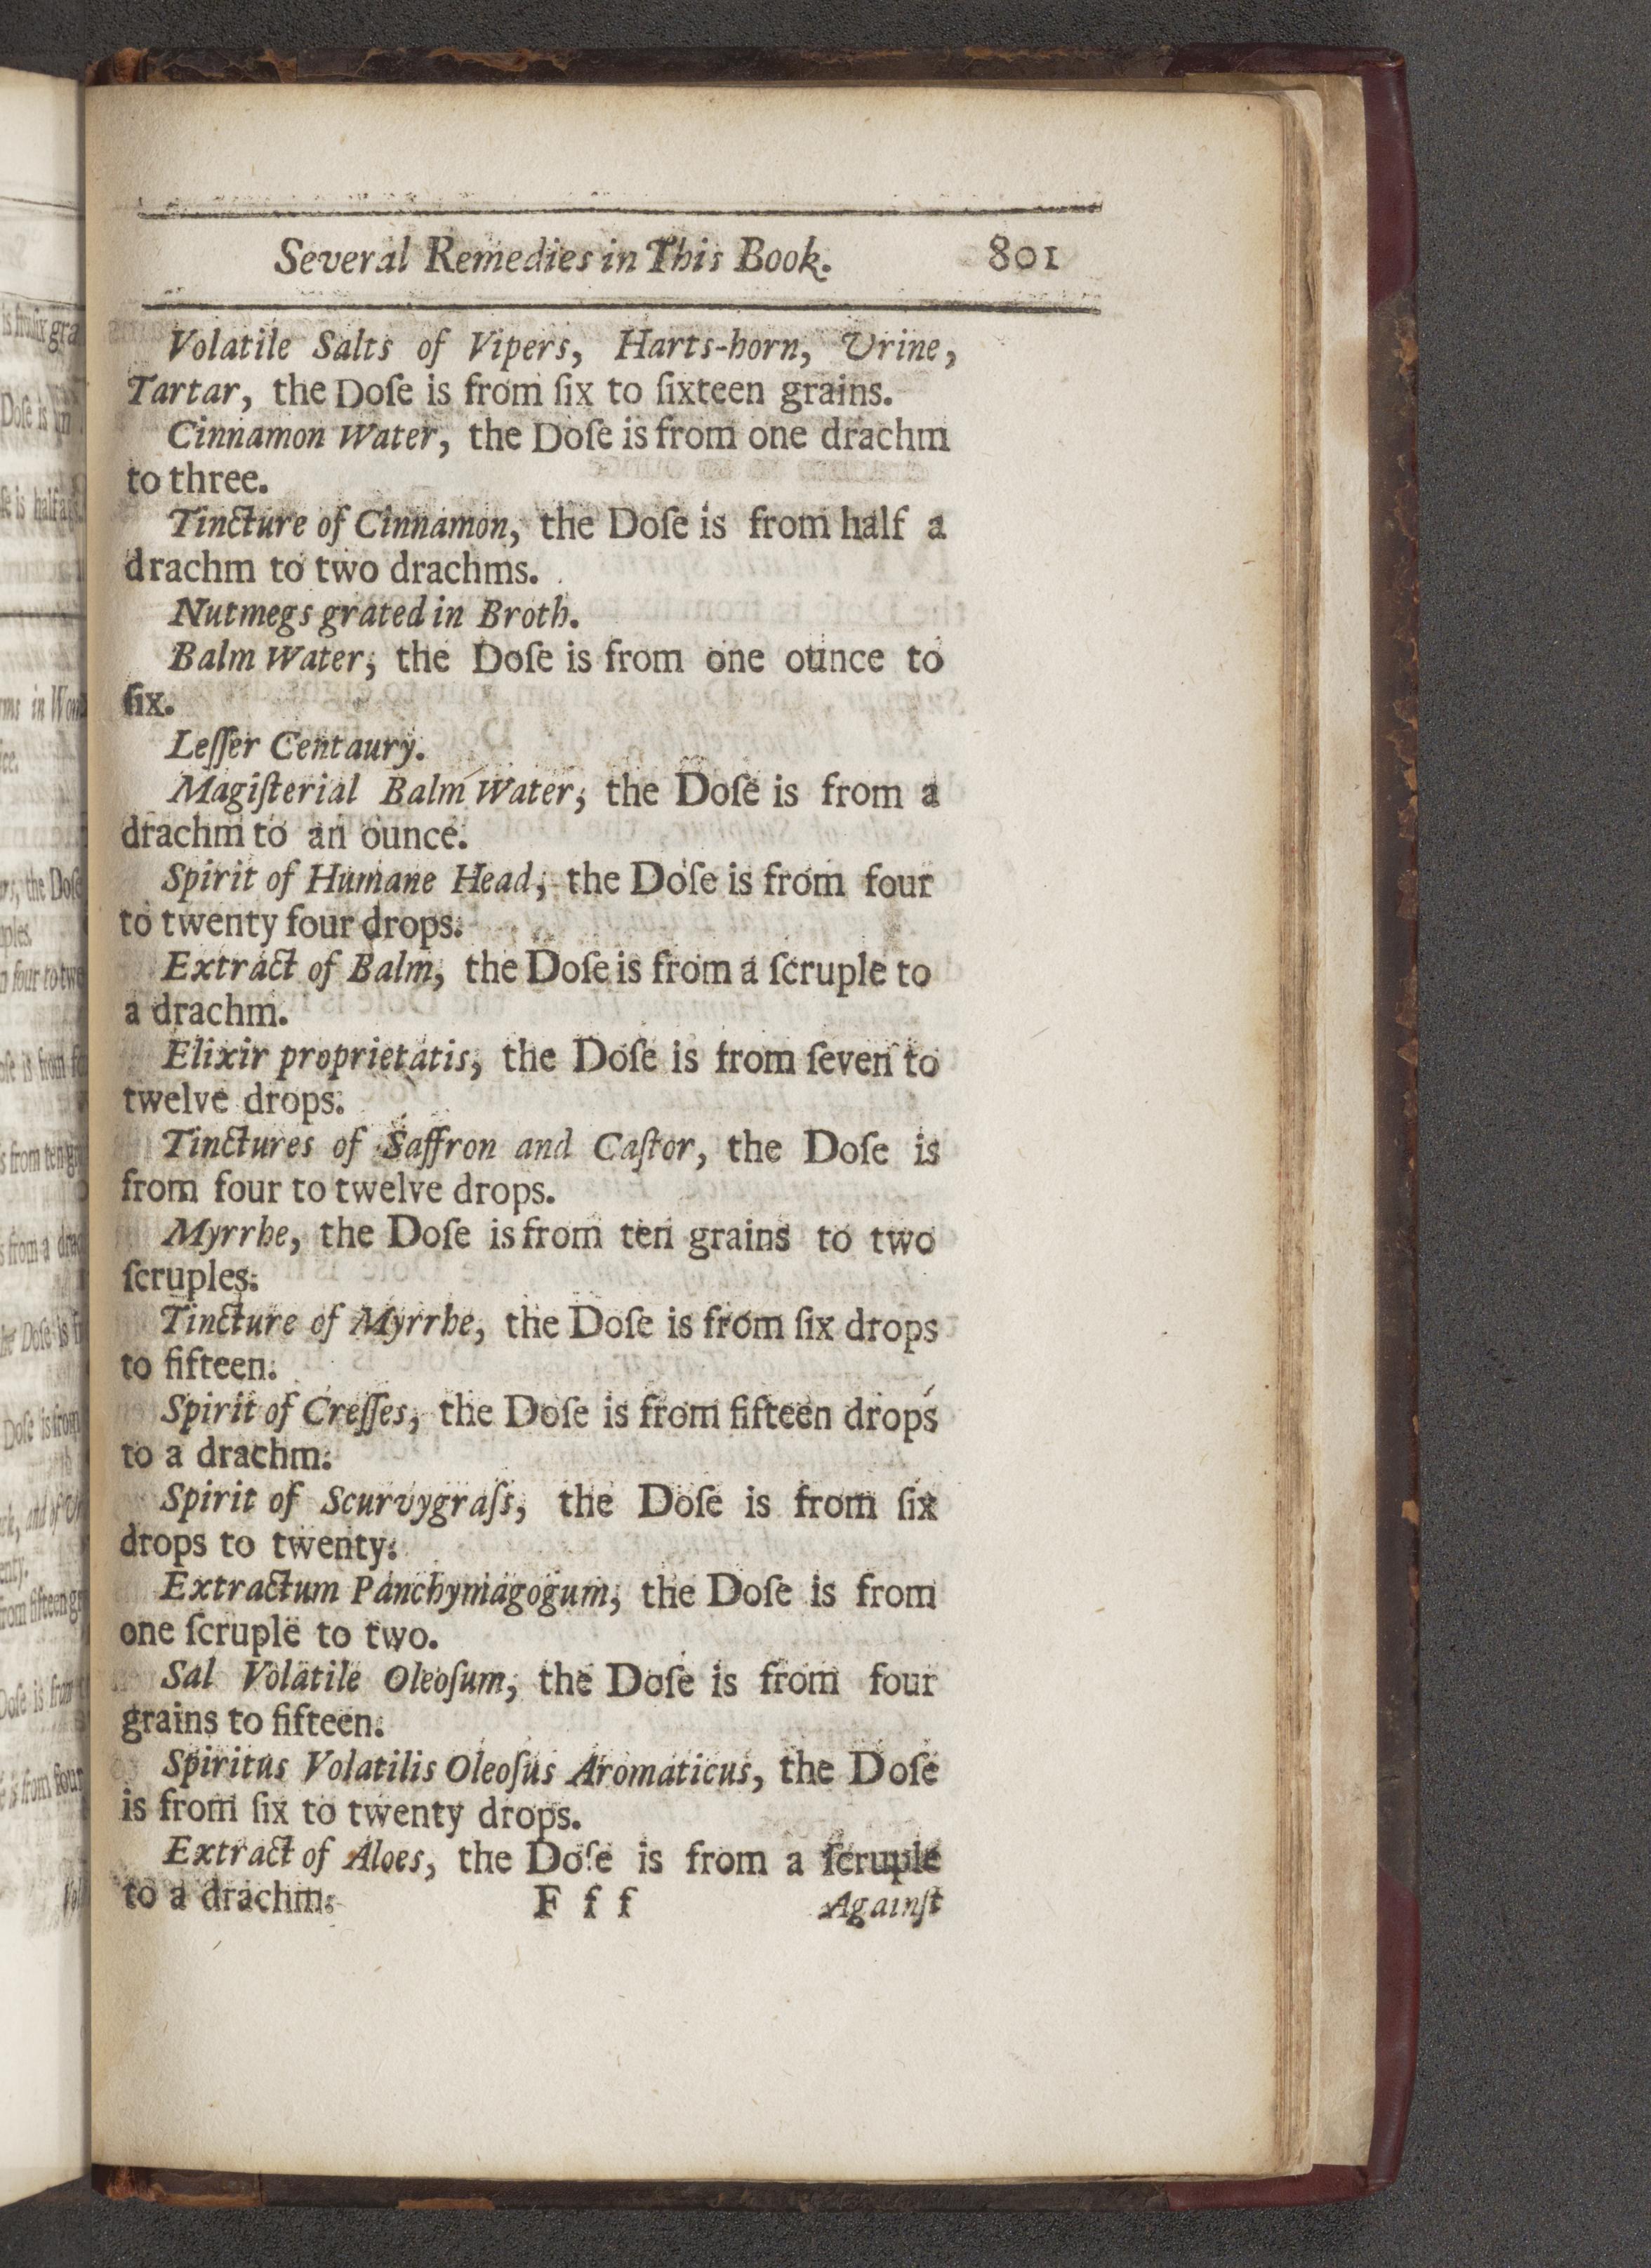 Several Remedies in This Book. 801
Volatile Salts of Vipers, Harts-horn, Urine,
Tartar, the Doſe is from ſix to ſixteen grains.
Cinnamon Water, the Doſe is from one drachm
to three.
Tincture of Cinnamon, the Doſe is from half a
drachm to two drachms.
Nutmegs grated in Broth.
Balm Water, the Doſe is from one ounce to
ſix.
Leſſer Centaury.
Magiſterial Balm Water, the Doſe is from a
drachm to an ounce.
Spirit of Humane Head, the Doſe is from four
to twenty four drops.
Extract of Balm, the Doſe is from a ſcruple to
a drachm.
Elixir proprietatis, the Doſe is from ſeven to
twelve drops.
Tinctures of Saffron and Caſtor, the Doſe is
from four to twelve drops.
Myrrhe, the Doſe is from ten grains to two
ſcruples.
Tincture of Myrrhe, the Doſe is from ſix drops
to fifteen.
Spirit of Creſſes, the Doſe is from fifteen drops
to a drachm.
Spirit of Scurvygraſs, the Doſe is from ſix
drops to twenty.
Extractum Panchymagogum, the Doſe is from
one ſcruple to two.
Sal Volatile Oleoſum, the Doſe is from four
grains to fifteen.
Spiritus Volatilis Oleoſus Aromaticus, the Doſe
is from ſix to twenty drops.
Extract of Aloes, the Doſe is from a ſcruple
to a drachm. F f f Againſt